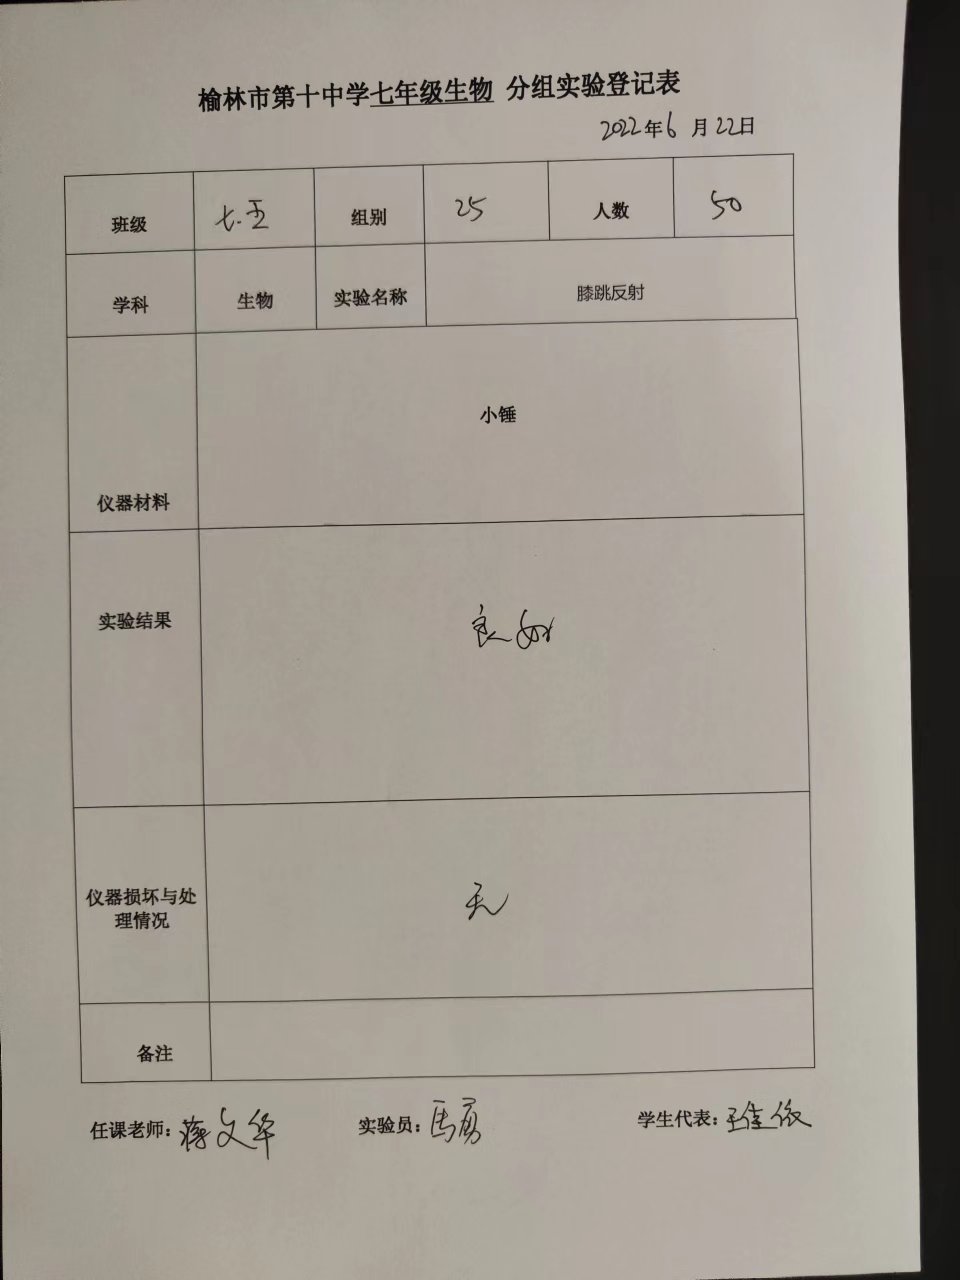 榆林市第十中学七年级生物 分组实验登记表
2022年6月22日
班级 七.五 组别 25 人数 50
学科 生物 实验名称 膝跳反射
小锤
仪器材料
实验结果 良好
仪器损坏与处
理情况
无
备注
任课老师：蒋文华 实验员：马勇 学生代表：王佳依